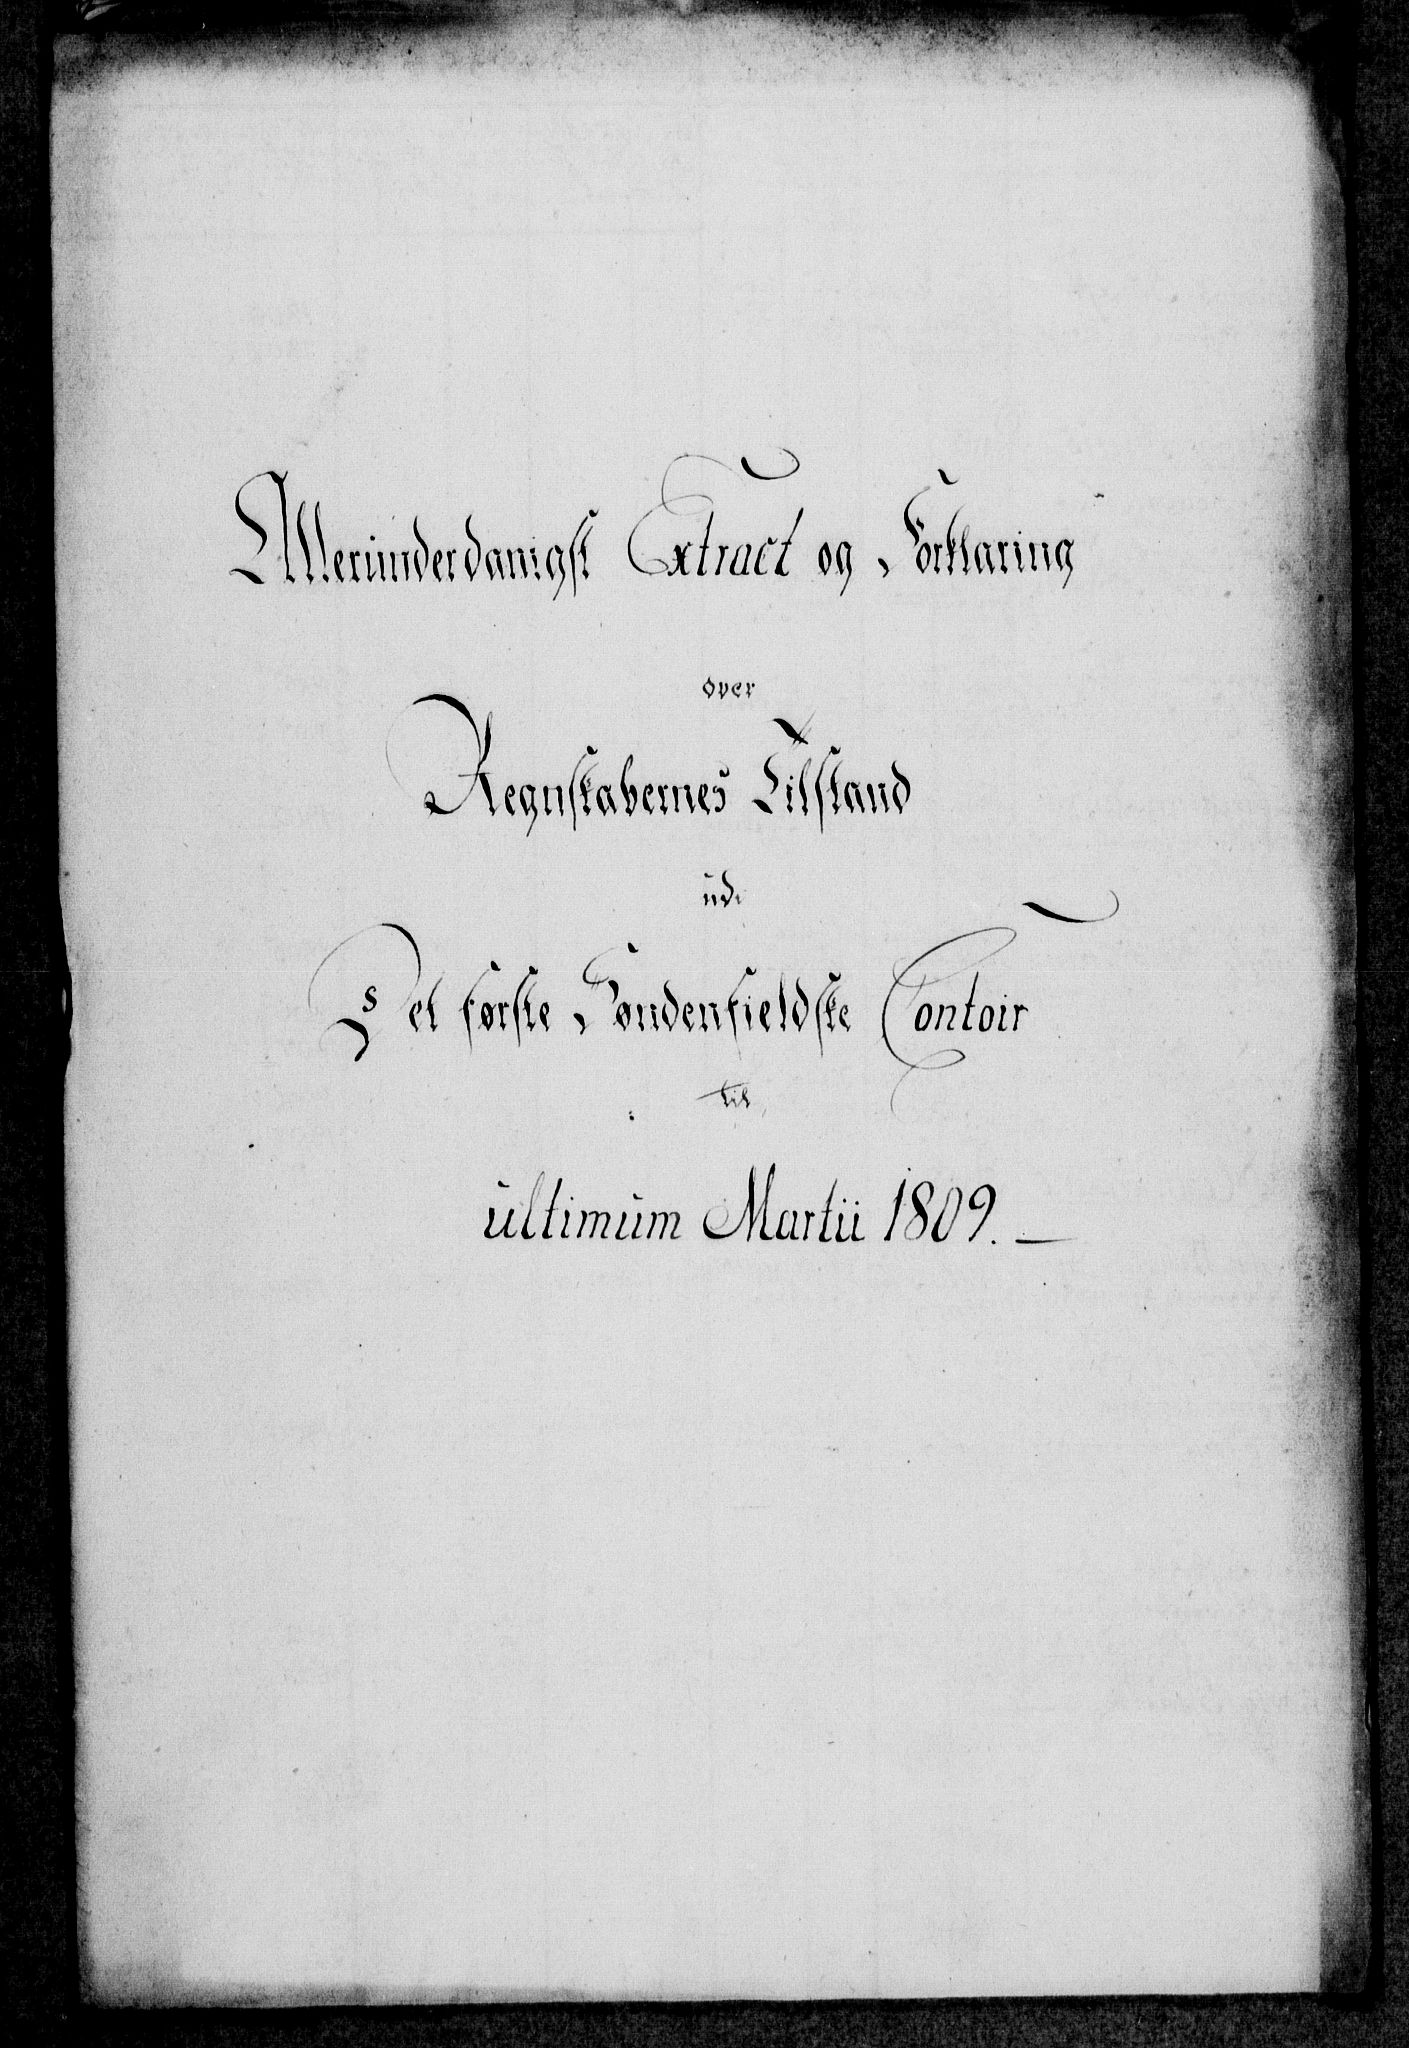 Allerunderdanigst Extract og Forklaring
over
Regnskabernes Tilstand
udi
Det første Søndenfieldske Contoir
til
ultimum Martii 1809. —